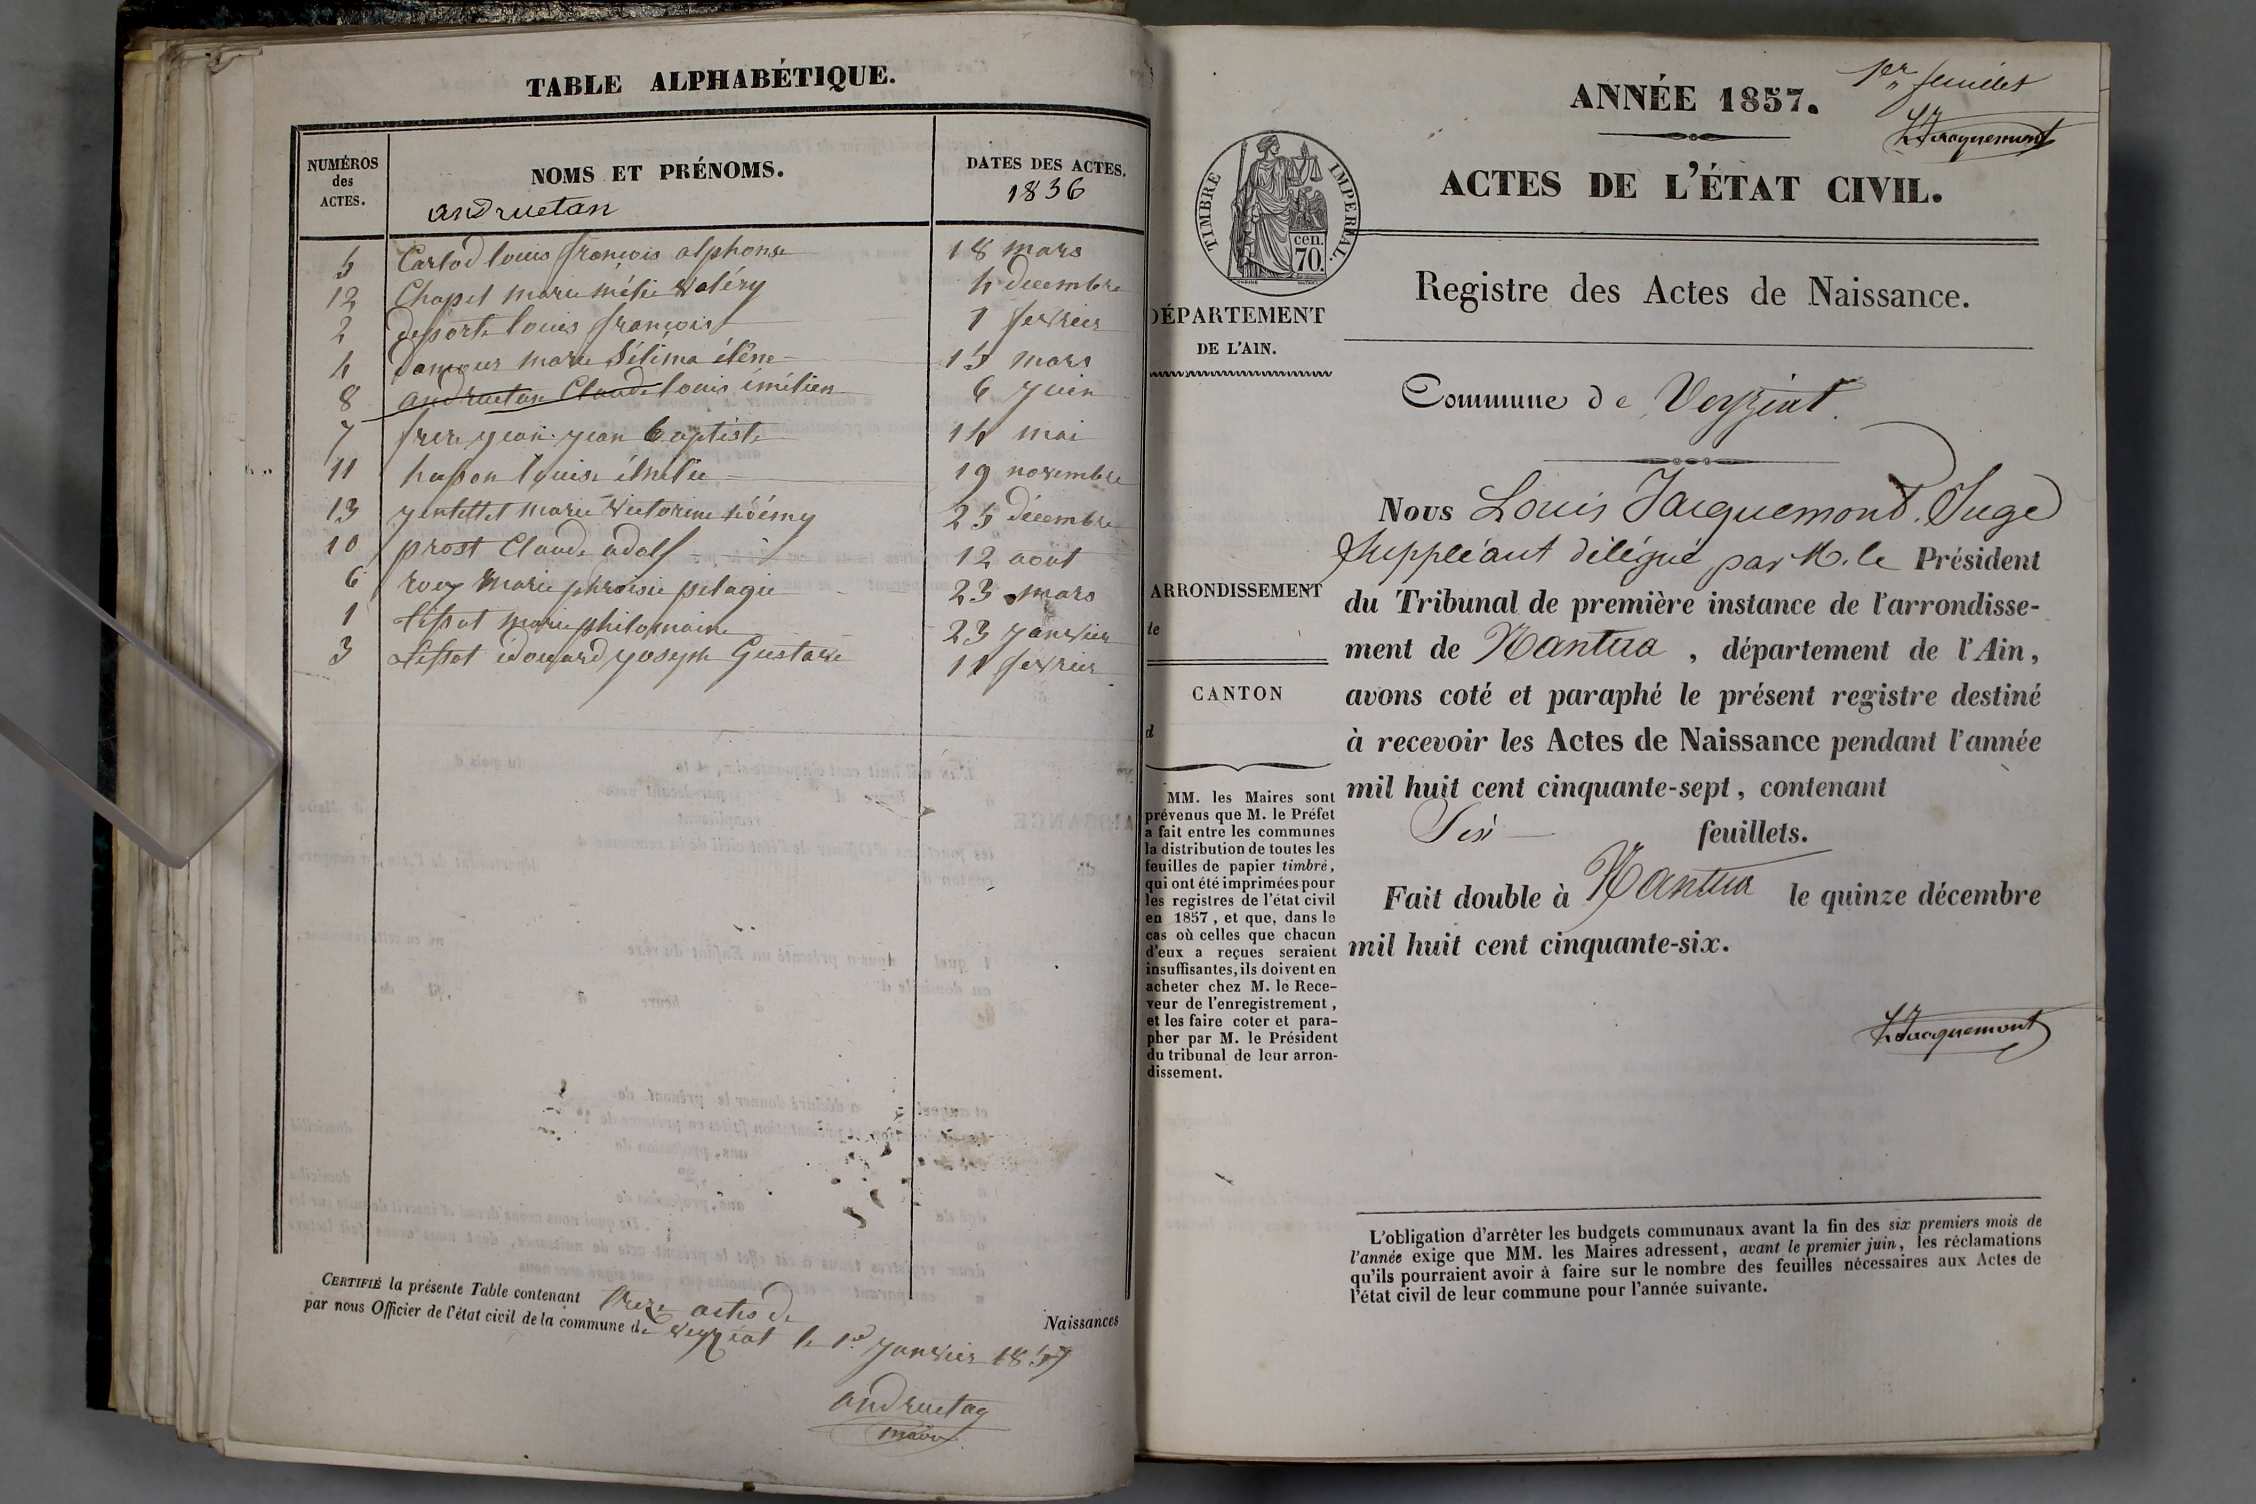 TABLE ALPHABÉTIQUE.
NUMÉROS
des
ACTES.
NOMS ET PRÉNOMS.
andruetan
DATES DES ACTES.
1856
5 Carlod louis françois alphonse 18 mars
12 Chapel marie valéry 4 decembre
2 louis françois 1 fevrier
4 damour marie élêne 15 mars
8 andruetan Claude louis émélien 6 juin
7 frere jean jean baptiste 14 mai
11 louise 19 novembre
13 marie victorine 25 décembre
10 prost Claude adolf 12 août
6 roux marie phrosie pelagie 23 mars
1 tissot marie philomaine 23 janvier
3 tissot édouard joseph Gustave 11 fevrier
CERTIFIÉ la présente Table contenant treze actes de Naissances
par nous Officier de l'état civil de la commune de veyziat le 1er janvier 1857
andruetan
maire
1er feuillet
L Jacquemont
ANNÉE 1857.
ACTES DE L'ÉTAT CIVIL.
TIMBRE IMPERIAL.
70 cen.
Registre des Actes de Naissance.
DÉPARTEMENT
DE L'AIN.
Commune de Veyziat.
Nous Louis Jacquemont, Juge
Suppléant délégué par M. le Président
du Tribunal de première instance de l'arrondisse-
ment de Nantua, département de l'Ain,
avons coté et paraphé le présent registre destiné
à recevoir les Actes de Naissance pendant l'année
mil huit cent cinquante-sept, contenant
Six feuillets.
Fait double à Nantua le quinze décembre
mil huit cent cinquante-six.
L Jacquemont
ARRONDISSEMENT
de
CANTON
d
MM. les Maires sont
prévenus que M. le Préfet
a fait entre les communes
la distribution de toutes les
feuilles de papier timbré,
qui ont été imprimées pour
les registres de l'état civil
en 1857, et que, dans le
cas où celles que chacun
d'eux a reçues seraient
insuffisantes, ils doivent en
acheter chez M. le Rece-
veur de l'enregistrement,
et les faire coter et para-
pher par M. le Président
du tribunal de leur arron-
dissement.
L'obligation d'arrêter les budgets communaux avant la fin des six premiers mois de
l'année exige que MM. les Maires adressent, avant le premier juin, les réclamations
qu'ils pourraient avoir à faire sur le nombre des feuilles nécessaires aux Actes de
l'état civil de leur commune pour l'année suivante.